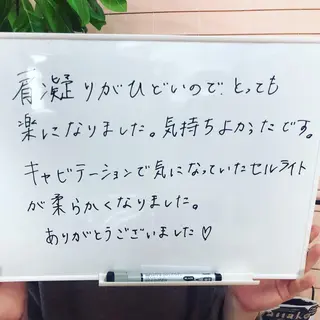 肩凝りがひどいので、とっても
楽になりました。気持ちよかったです。
キャビテーションで気になっていたセルライト
が柔らかくなりました。
ありがとうございました♡